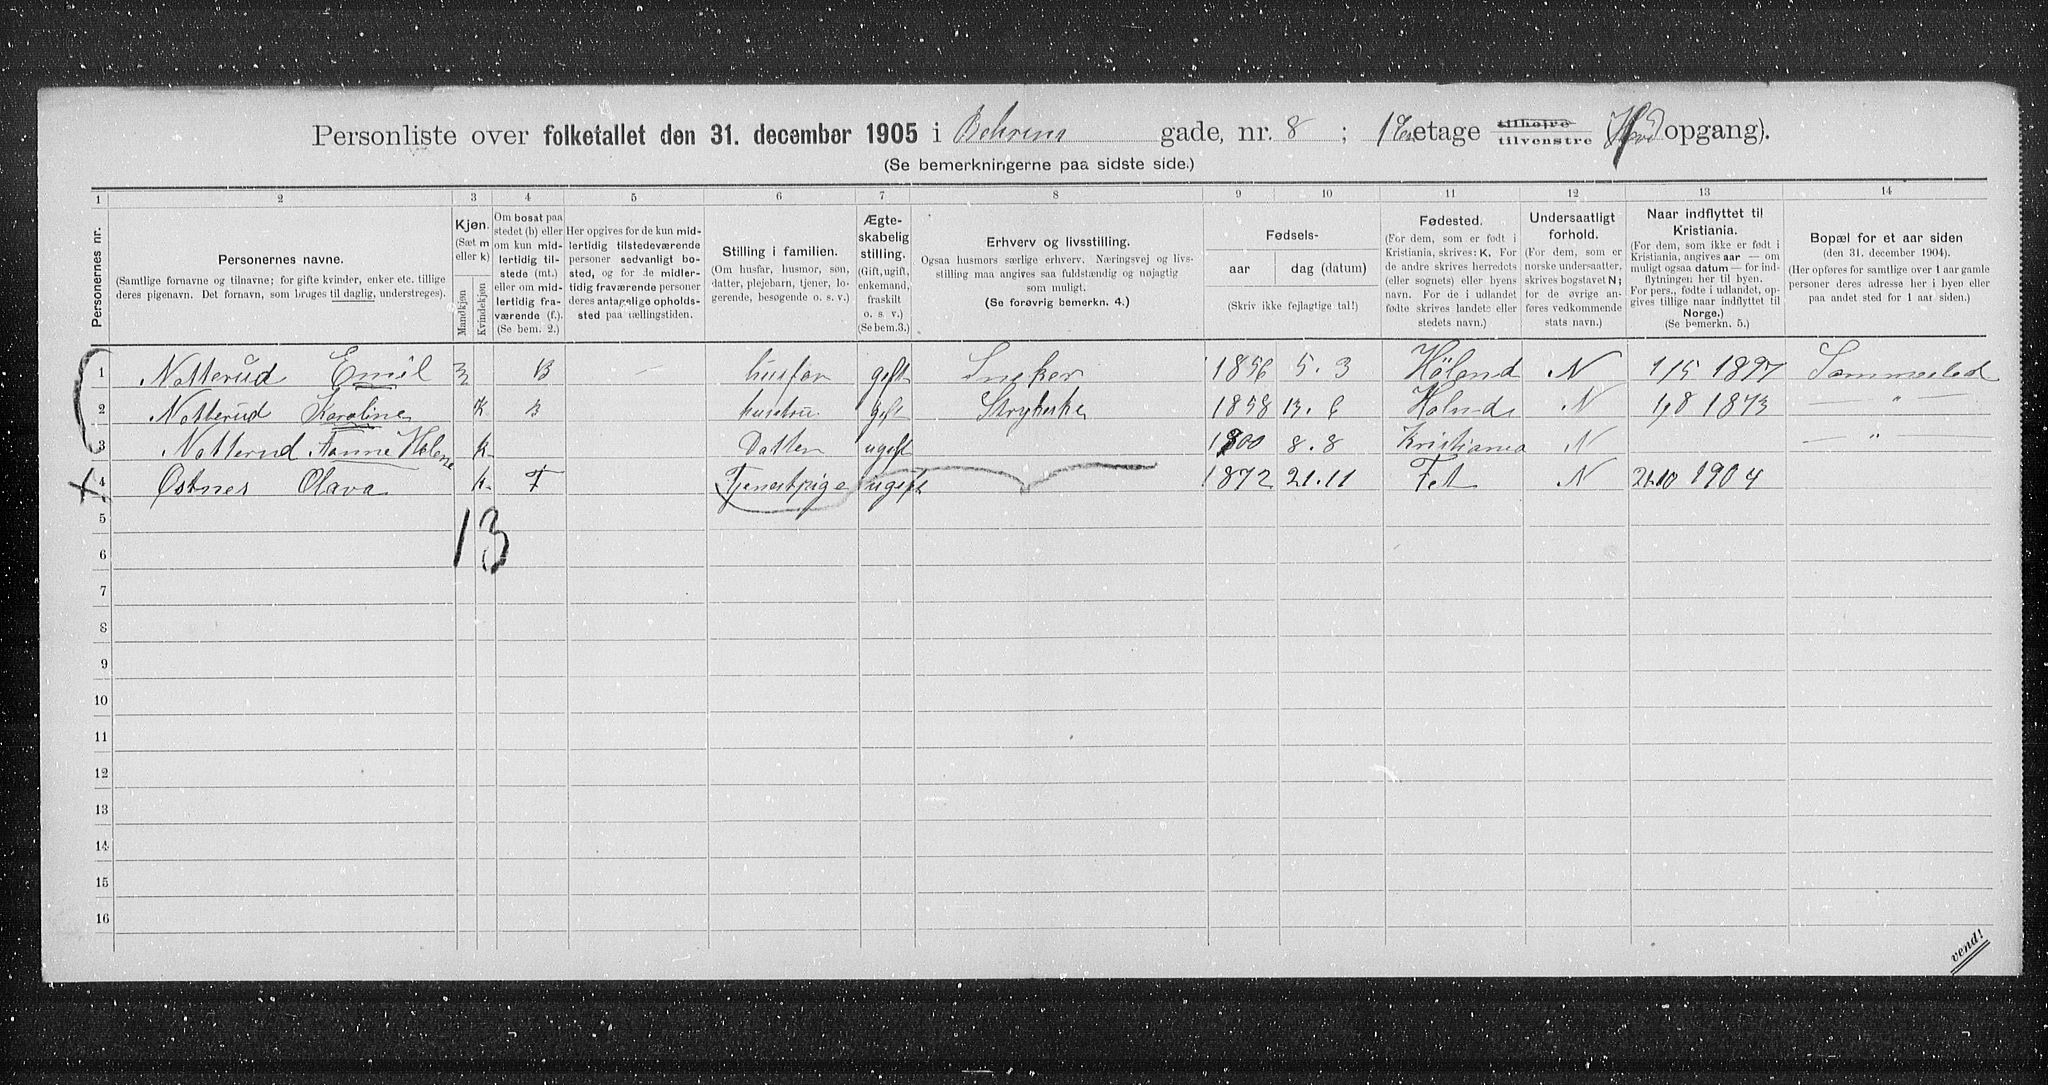 Personliste over folketallet den 31. december 1905 i Behrens gade, nr. 8 ; 1 etage tilhøjre tilvenstre ( opgang).
(Se bemerkningerne paa sidste side.)
1 2 3 4 5 6 7 8 9 10 11 12 13 14
Personernes nr.
Personernes navne.
(Samtlige fornavne og tilnavne; for gifte kvinder, enker etc. tillige
deres pigenavn. Det fornavn, som bruges til daglig, understreges).
Kjøn.
(Sæt m
eller k)
Mandkjøn
Kvindekjøn
Om bosat paa
stedet (b) eller
om kun mid-
lertidig til-
stede (mt.)
eller om mid-
lertidig fra-
værende (f.).
(Se bem. 2.)
Her opgives for de kun mid-
lertidig tilstedeværende
personer sedvanligt bo-
sted, og for de midler-
tidig fraværende personer
deres antagelige opholds-
sted paa tællingstiden.
Stilling i familien.
(Om husfar, husmor, søn,
datter, plejebarn, tjener, lo-
gerende, besøgende o. s. v.)
Ægte-
skabelig
stilling.
(Gift, ugift,
enkemand,
fraskilt
o. s. v.)
(Se bem.3.)
Erhverv og livsstilling.
Ogsaa husmors særlige erhverv. Næringsvej og livs-
stilling maa angives saa fuldstændig og nøjagtig
som muligt.
(Se forøvrig bemerkn. 4.)
Fødsels-
aar
dag (datum)
(Skriv ikke fejlagtige tal!)
Fødested.
(For dem, som er født i
Kristiania, skrives: K. For
de andre skrives herredets
(eller sognets) eller byens
navn. For de i udlandet
fødte skrives landets eller
stedets navn.)
Undersaatligt
forhold.
(For dem, som er
norske undersaatter,
skrives bogstavet N;
for de øvrige an-
føres vedkommende
stats navn.)
Naar indflyttet til
Kristiania.
(For dem, som ikke er født i
Kristiania, angives aar — om
muligt ogsaa datum — for ind-
flytningen her til byen.
For pers., fødte i udlandet, op-
gives tillige naar indflyttet til
Norge.)
(Se bemerkn. 5.)
Bopæl for et aar siden
(den 31. december 1904).
(Her opføres for samtlige over 1 aar gamle
personer deres adresse her i byen eller
paa andet sted for 1 aar siden.)
1 Notterud Emil B — husfar gift Sneker 1856 5.3 Höland N 1/5 1897 Sammested
2 Notterud Karoline K B hustru gift 1858 13.6 N 1/8 1873 — " —
3 Notterud Anne Helene k Datter ugift 1900 8.8 Kristiania N — " —
4 Østnes Olava k. F Tjenestpige ugift 1872 21.11 Fet N 21.10 1904
5
13
6
7
8
9
10
11
12
13
14
15
16
vend!